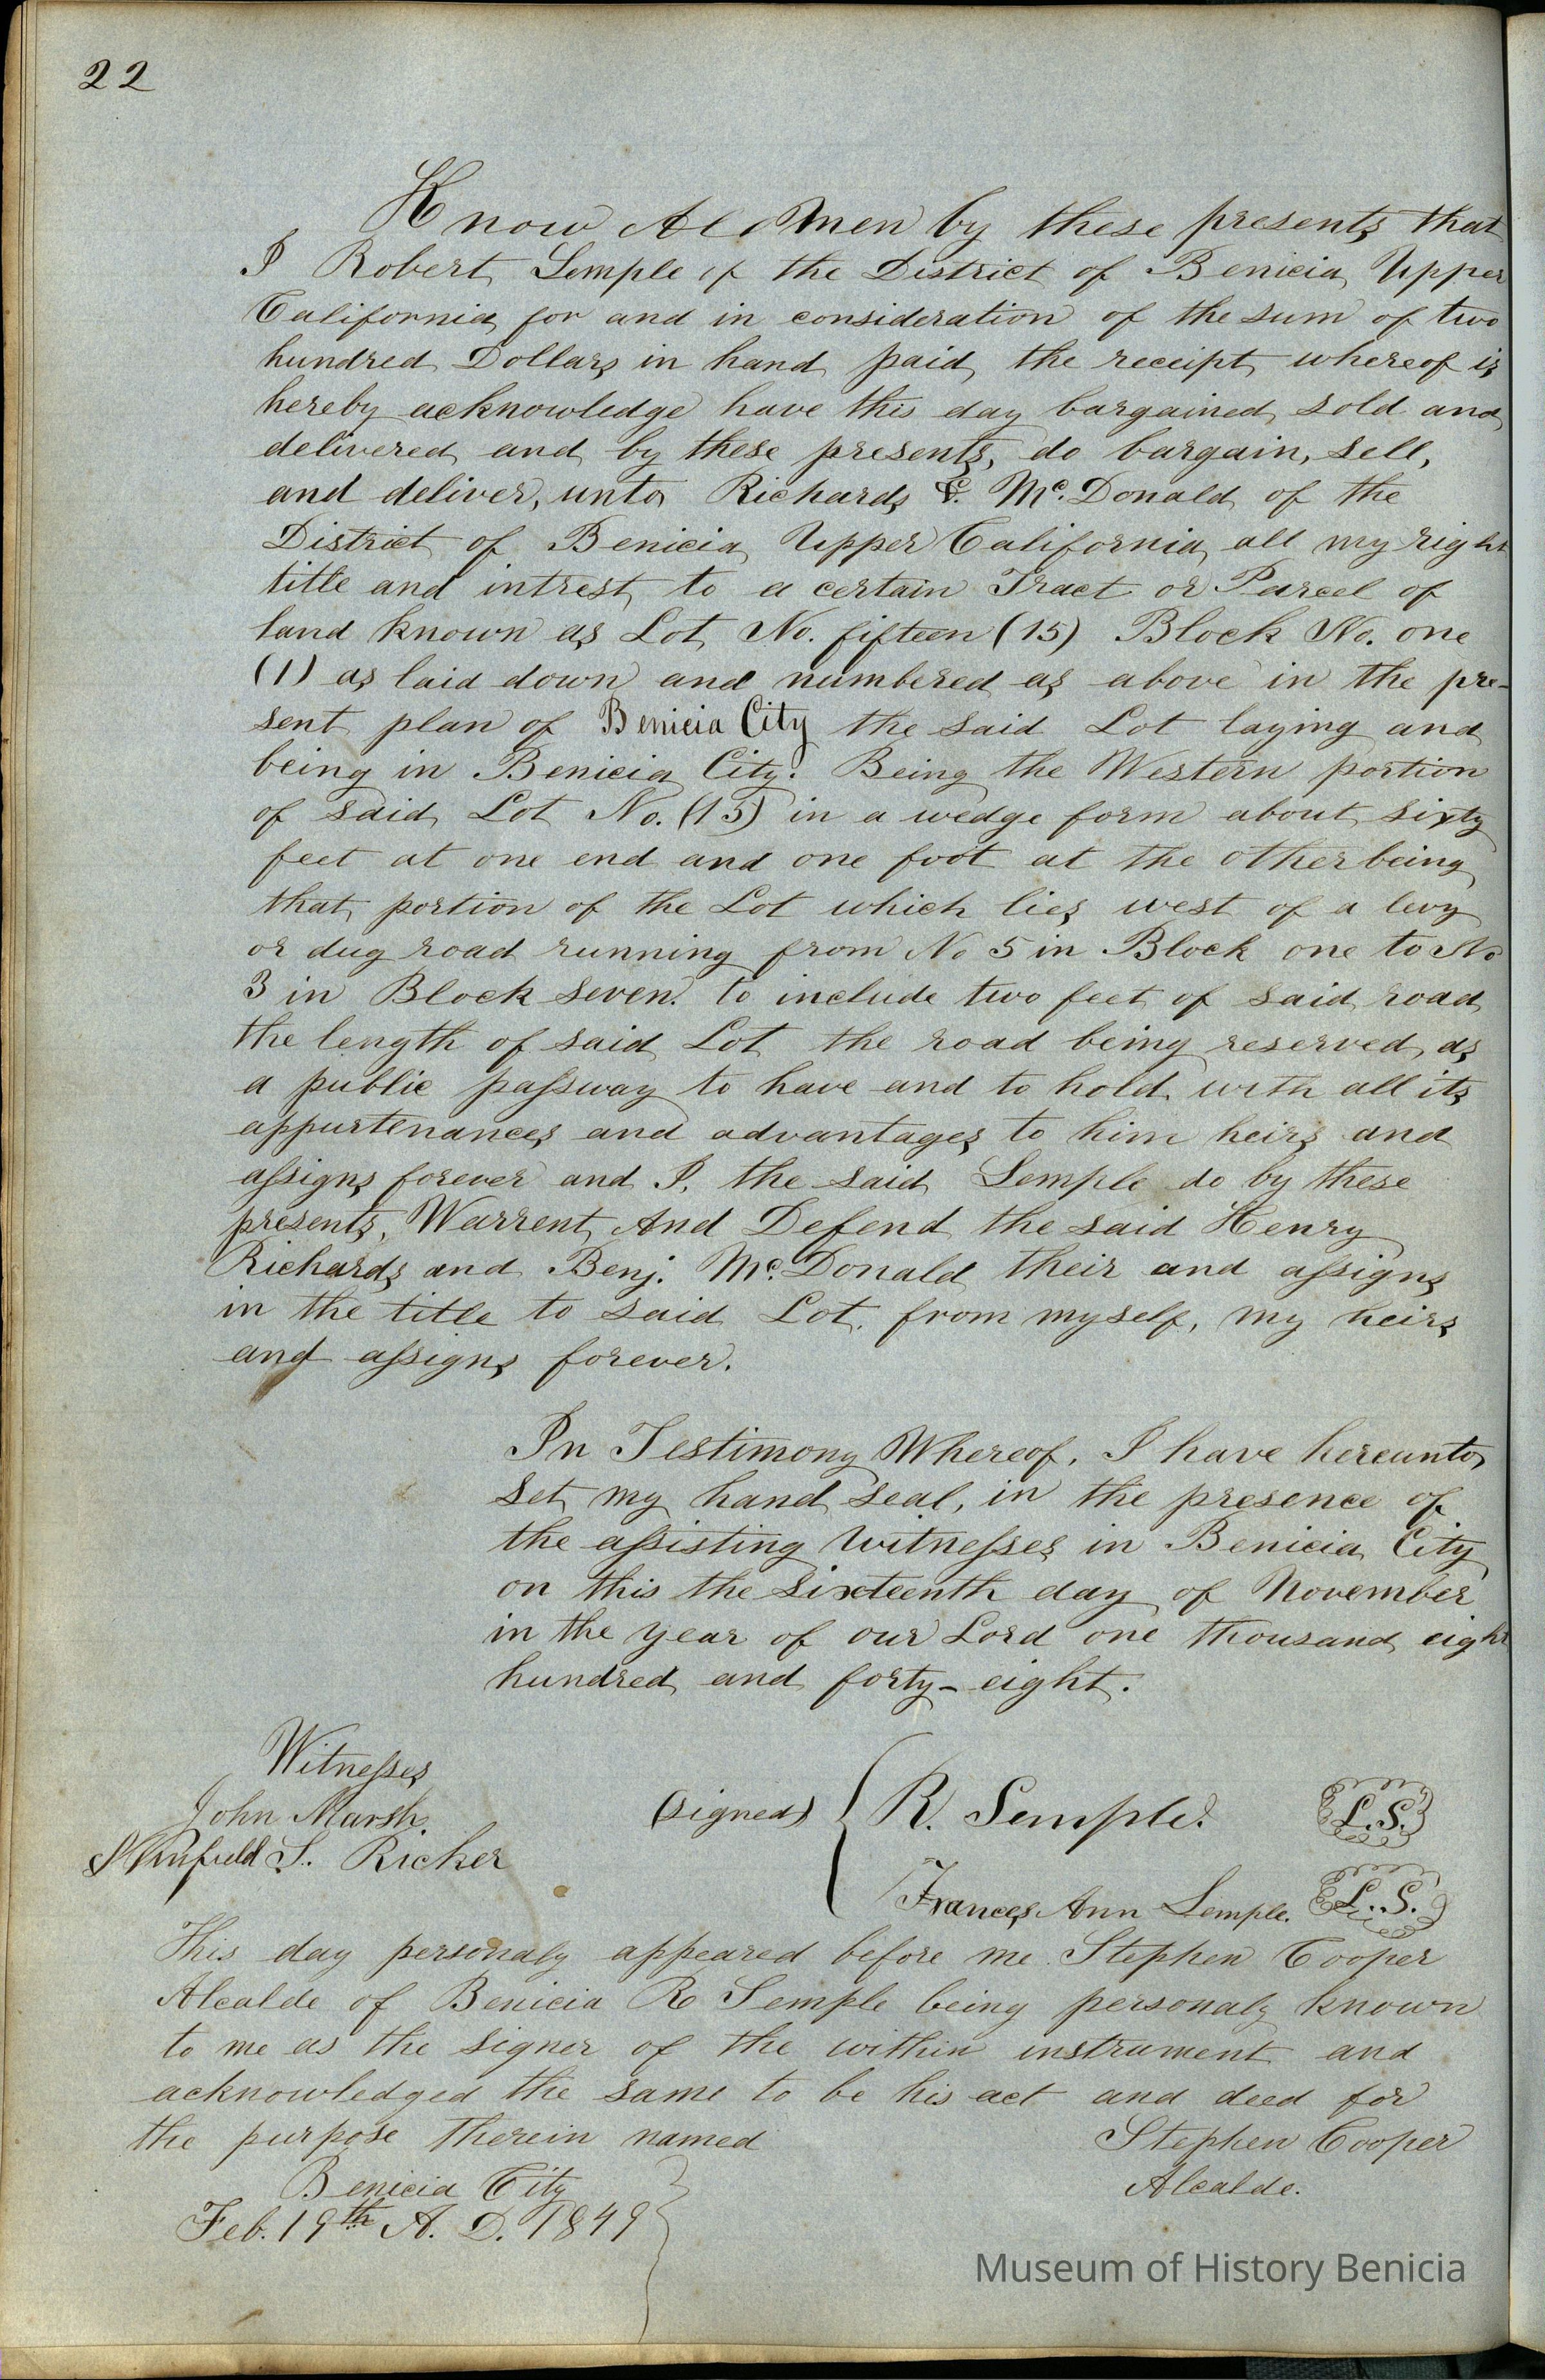 22
Know All Men by these presents that
I Robert Semple of the District of Benicia Upper
California for and in consideration of the sum of two
hundred Dollars in hand paid the receipt whereof is
hereby acknowledge have this day bargained, sold and
delivered and by these presents, do bargain, sell,
and deliver, unto Richards & Mc. Donald of the
District of Benicia Upper California all my right
title and intrest to a certain Tract or Parcel of
land known as Lot No. fifteen (15) Block No. one
(1) as laid down and numbered as above in the pre-
sent plan of Benicia City the said Lot laying and
being in Benicia City. Being the Western portion
of said Lot No. (15) in a wedge form about sixty
feet at one end and one foot at the other being
that portion of the Lot which lies west of a levy
or dug road running from No 5 in Block one to No
3 in Block seven. to include two feet of said road
the length of said Lot the road being reserved as
a public passway to have and to hold with all its
appurtenances and advantages to him heirs and
assigns forever and I, the said Semple do by these
presents, Warrent And Defend the said Henry
Richards and Benj. Mc. Donald their and assigns
in the title to said Lot. from myself, my heirs
and assigns forever.
In Testimony Whereof, I have hereunto
set my hand seal, in the presence of
the assisting Witnesses in Benicia City
on this the sixteenth day of November
in the year of our Lord one thousand eight
hundred and forty-eight.
Witnesses
John Marsh
S. Ricker
(signed) R. Semple. L.S.
Frances Ann Semple. L.S.
This day personaly appeared before me Stephen Cooper
Alcalde of Benicia Ro Semple being personaly known
to me as the signer of the within instrument and
acknowledged the same to be his act and deed for
the purpose therein named Stephen Cooper
Benicia City Alcalde.
Feb. 19th A. D. 1849
Museum of History Benicia